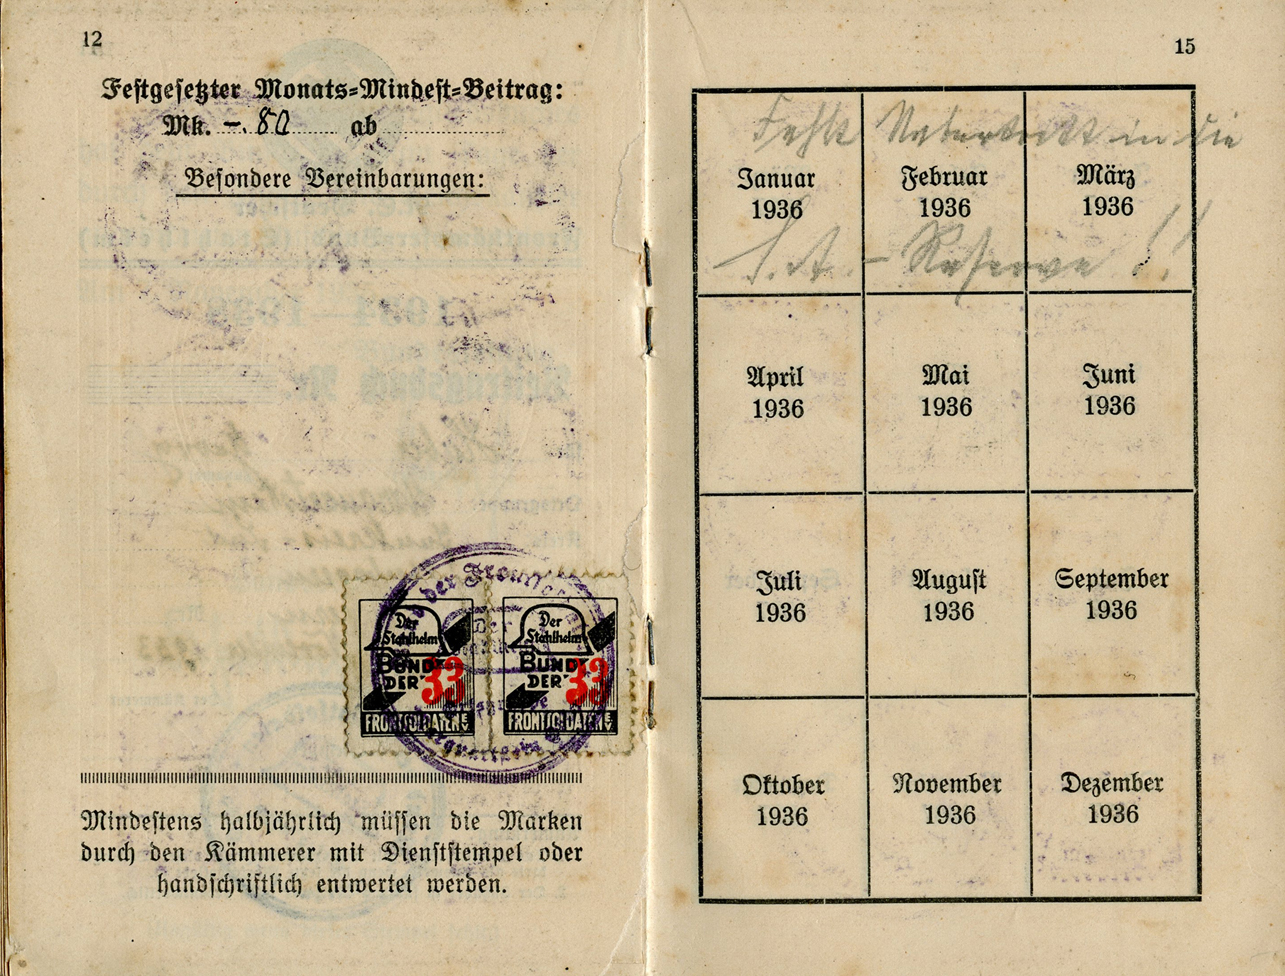 12
Festgesetzter Monats-Mindest-Beitrag:
Mk. -.80 ab
Besondere Vereinbarungen:
Der Stahlhelm
BUND
DER 33
FRONTSOLDATEN E.V.
Der Stahlhelm
BUND
DER 33
FRONTSOLDATEN E.V.
der Frontsoldaten
Der
Mindestens halbjährlich müssen die Marken
durch den Kämmerer mit Dienststempel oder
handschriftlich entwertet werden.
15
Fehlt in die
Januar Februar März
1936 1936 1936
S.A.-Reserve!!
April Mai Juni
1936 1936 1936
Juli August September
1936 1936 1936
Oktober November Dezember
1936 1936 1936